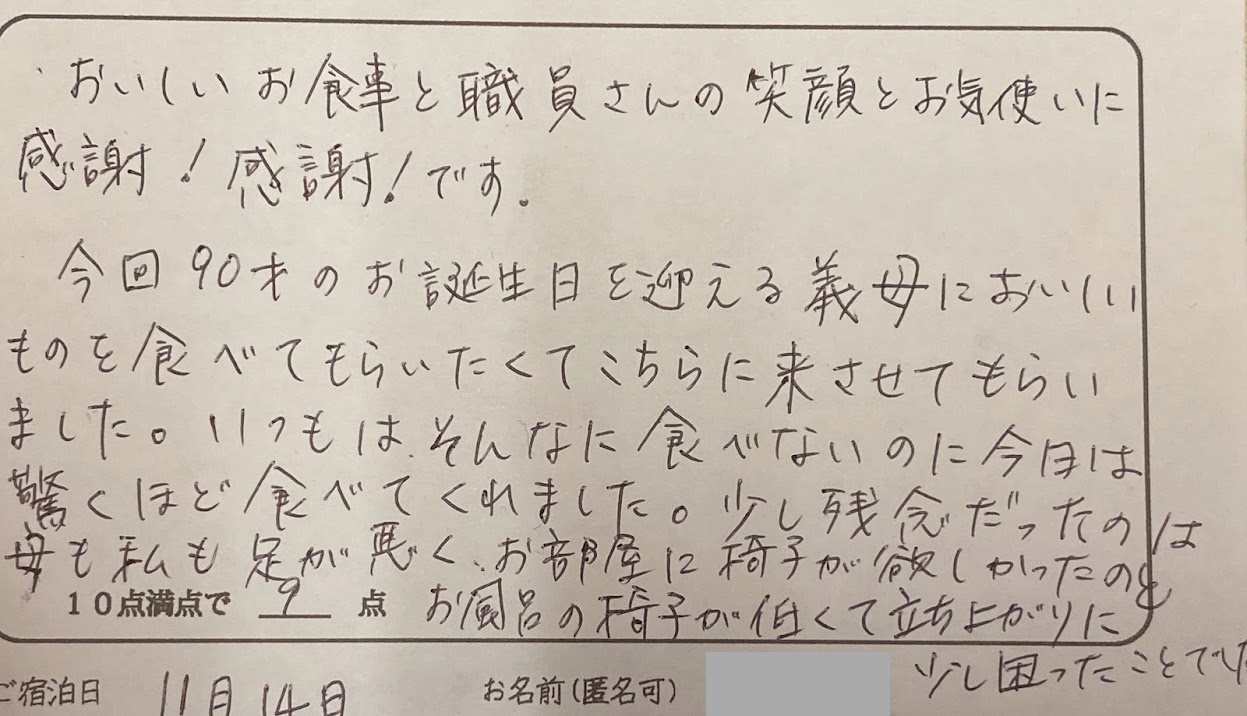 おいしいお食事と職員さんの笑顔とお気使いに
感謝！感謝！です.
今回90才のお誕生日を迎える義母においしい
ものを食べてもらいたくてこちらに来させてもらい
ました。いつもは、そんなに食べないのに今日は
驚くほど食べてくれました。少し残念だったのは
母も私も足が悪く、お部屋に椅子が欲しかったのと
10点満点で 9 点 お風呂の椅子が低くて立ち上がりに
少し困ったことでした
ご宿泊日 11月14日 お名前（匿名可）